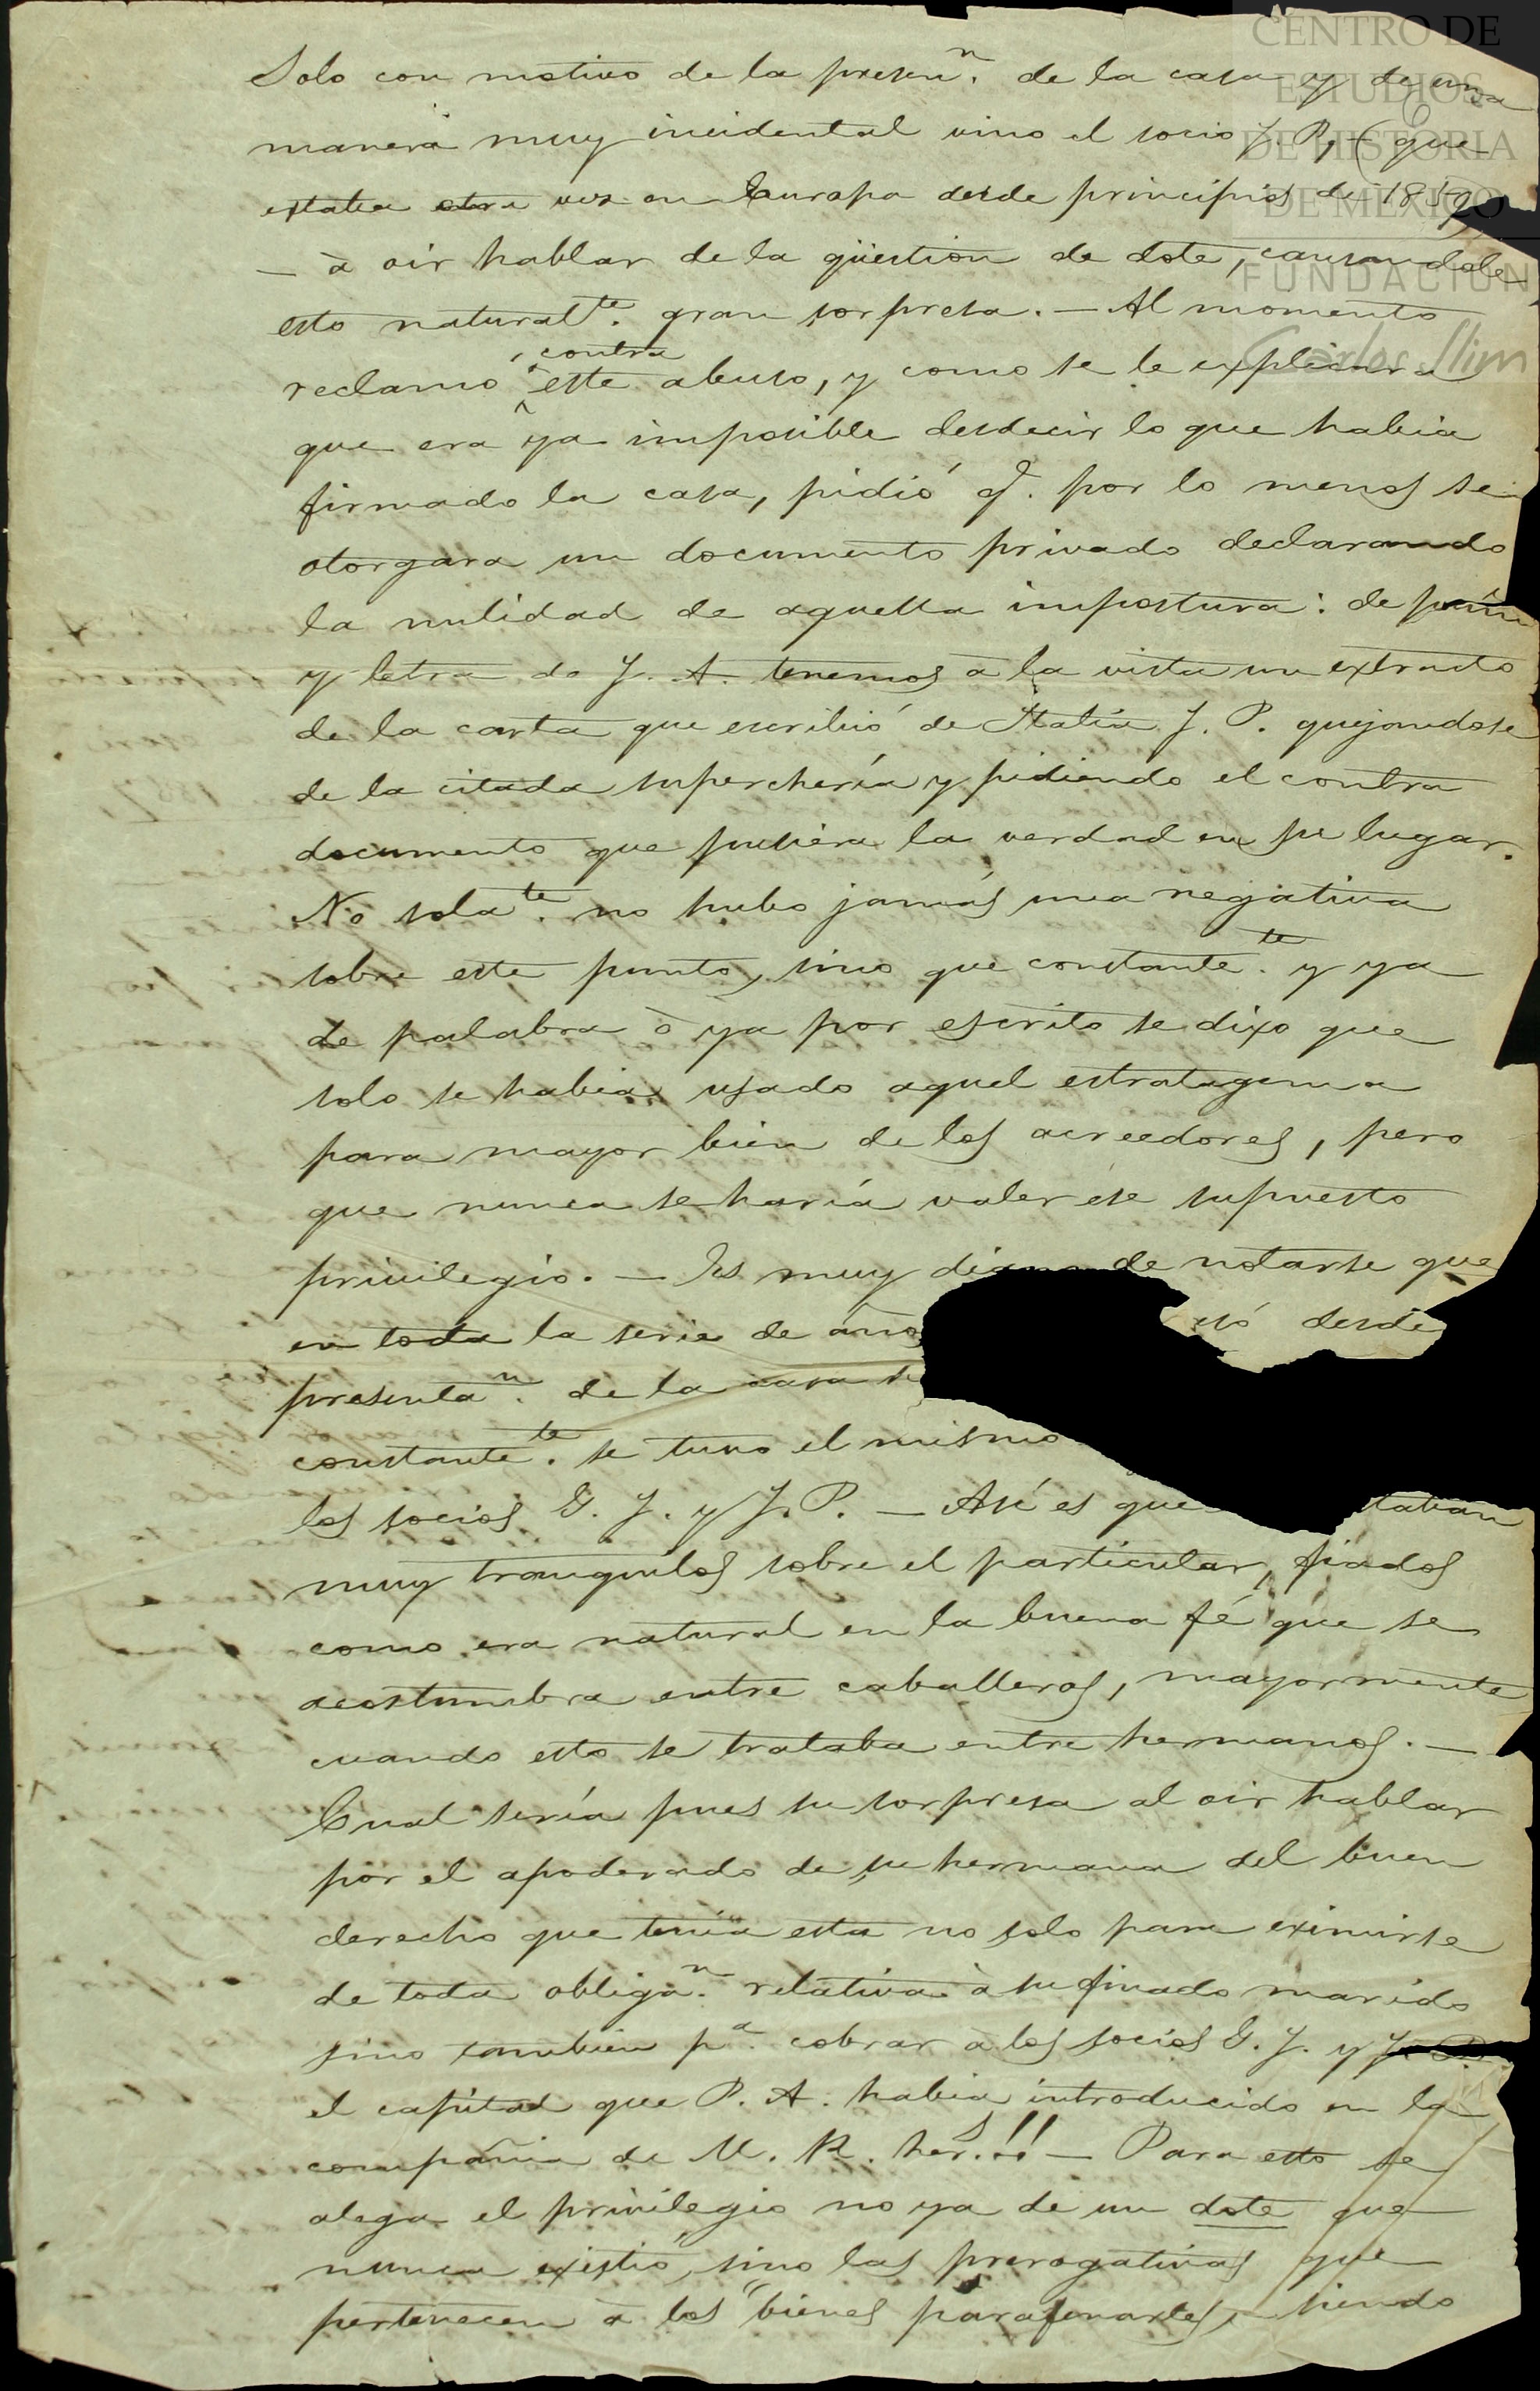 Solo con motivo de la presenⁿ. de la casa y de una
manera muy incidental vino el socio J. P, – (que
estaba otra vez en Europa desde principios de 1859
– à oir hablar de la qüestion de dote, causandole
esto naturalᵗᵉ. gran sorpresa. – Al momento
contra
reclamó este abuso, y como se le explicara
que era ya imposible desdecir lo que habia
firmado la casa, pidió q̃. por lo menos se
otorgara un documento privado declarando
la nulidad de aquella impostura: de puño
y letra de J. A. tenemos à la vista un extracto
de la carta que escribió de Italia J. P. quejandose
de la citada superchería y pidiendo el contra
documento que pusiera la verdad en su lugar.
No solaᵗᵉ. no hubo jamás una negativa
sobre este punto, sino que constanteᵗᵉ. y ya
de palabra ò ya por escrito se dixo que
solo se habia usado aquel estratagema
para mayor bien de los acreedores, pero
que nunca se haría valer ese supuesto
privilegio. – Es muy digno de notarse que
en toda la serie de años só desde
presentaⁿ. de la casa se
constanteᵗᵉ. se tuvo el mismo
los socios G. J. y J. P. – Así es que taban
muy tranquilos sobre el particular, fiados
como era natural en la buena fé que se
acostumbra entre caballeros, mayormente
cuando esto se trataba entre hermanos. –
Cual sería pues su sorpresa al oir hablar
por el apoderado de su hermana del buen
derecho que tenia esta no solo para eximirse
de toda obligaⁿ. relativa à su finado marido
sino tambien pᵃ. cobrar à los socios G. J. y J. P.
el capital que P. A. habia introducido en la
compañia de M. R. herˢ.!! – Para esto se
alega el privilegio no ya de un dote que
nunca existió, sino las prerogativas que
pertenecen à los "bienes parafernales, siendo